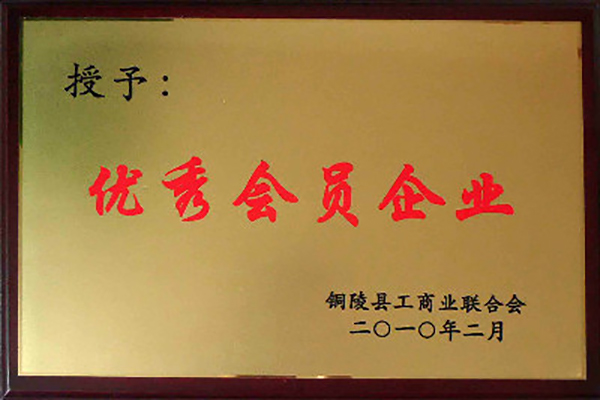 授予：
优秀会员企业
铜陵县工商业联合会
二〇一〇年二月